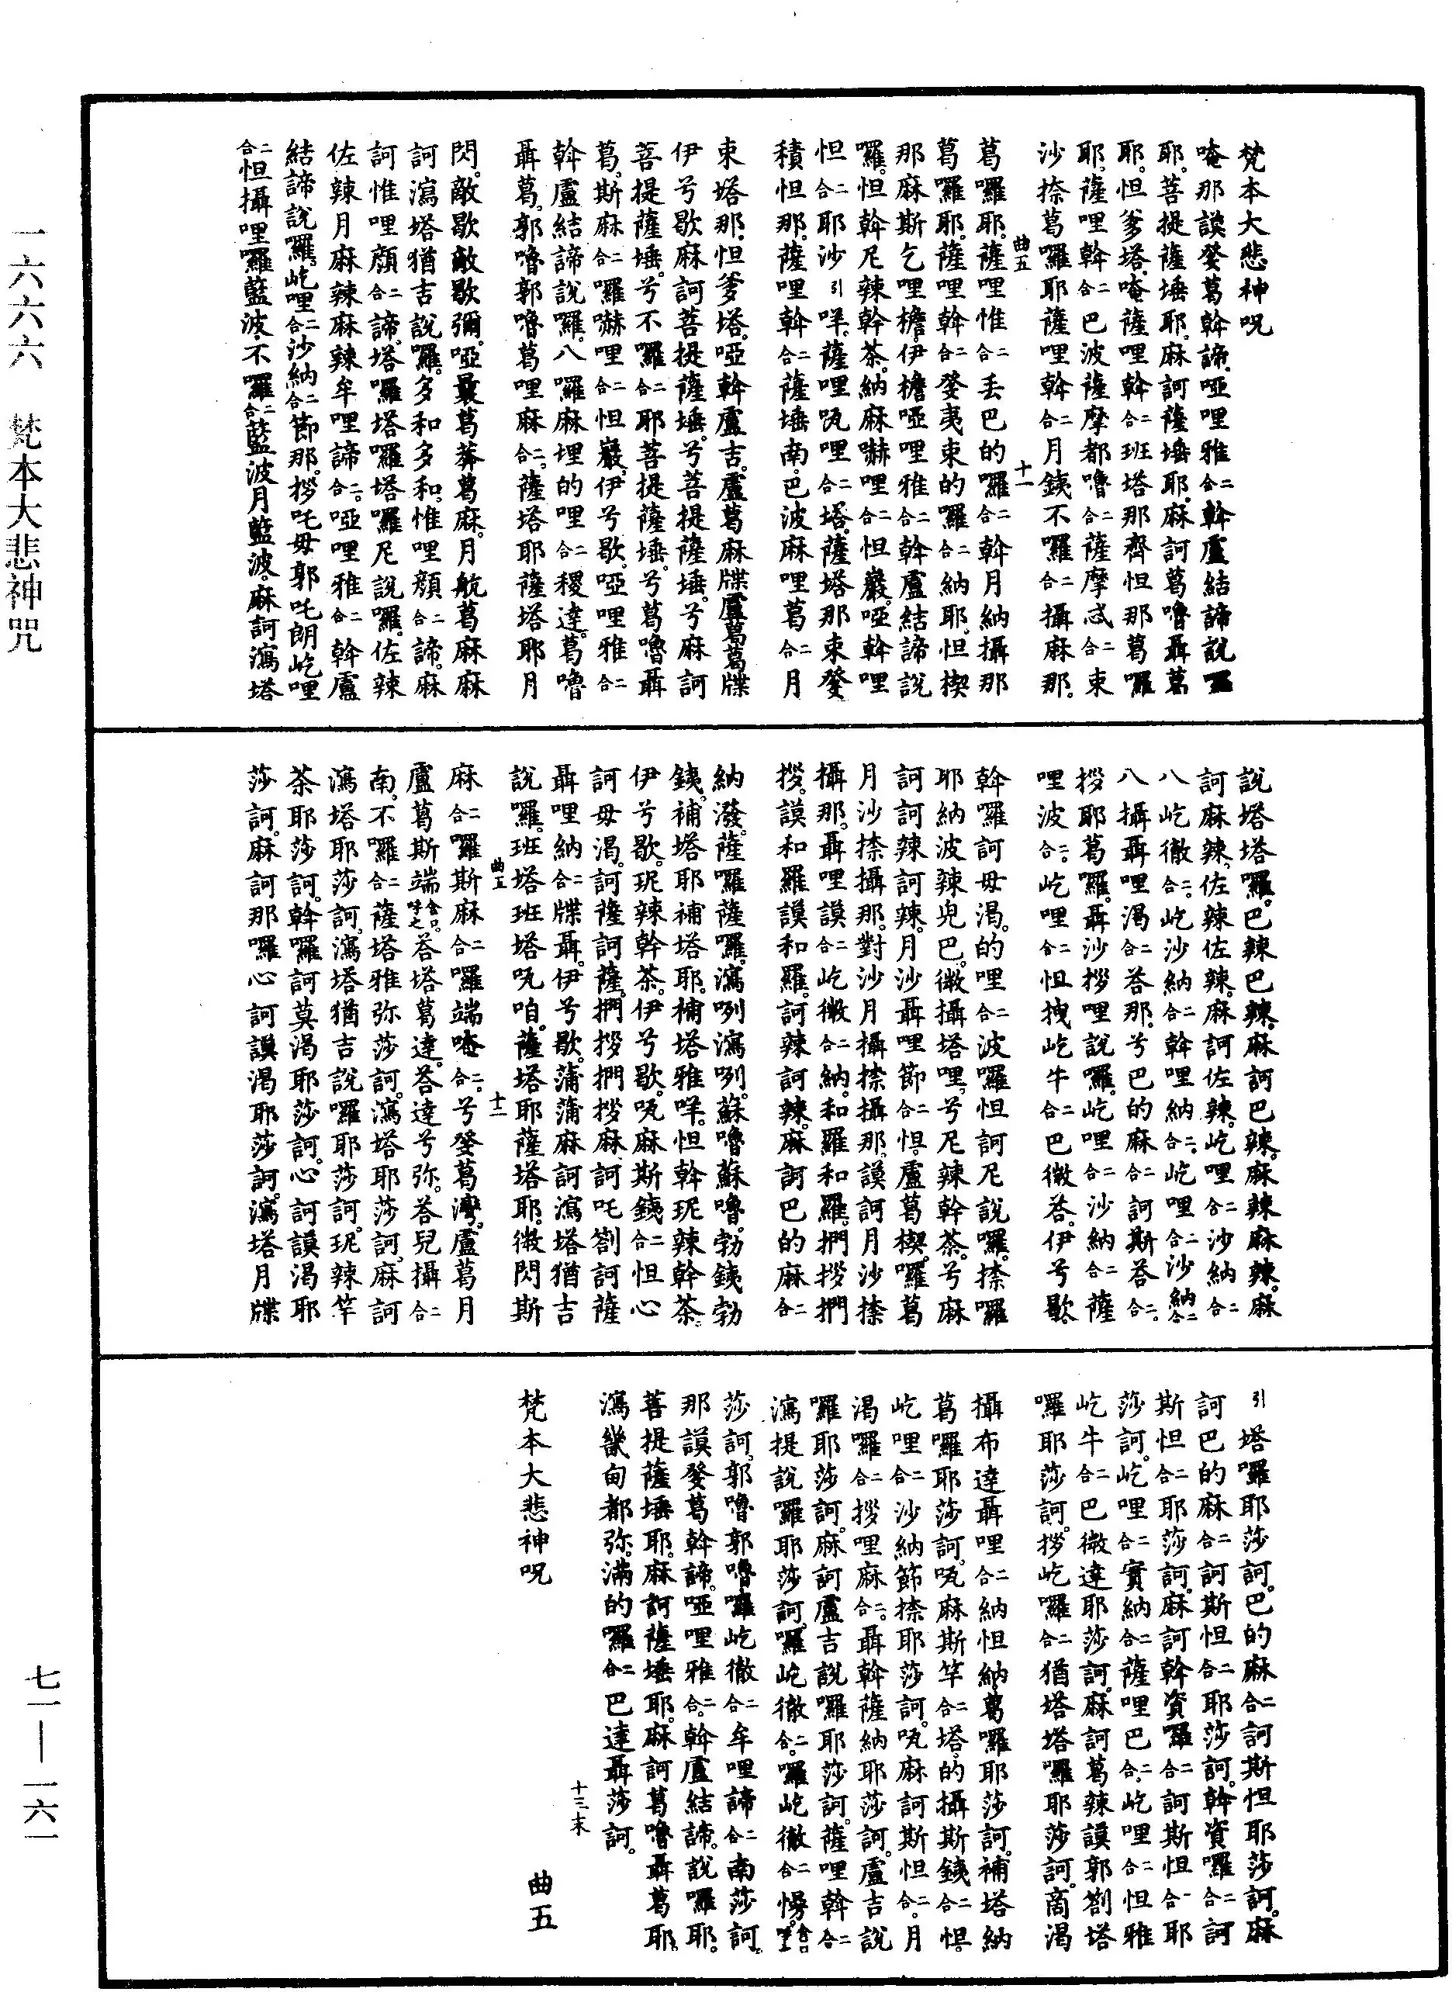 梵本大悲神呪
唵那謨癹葛斡諦.啞哩雅二合斡盧結諦說囉
耶.菩提薩埵耶.麻訶薩埵耶.麻訶葛嚕聶葛
耶.怛爹塔.唵薩哩斡二合班塔那齊怛那葛囉
耶.薩哩斡二合巴波薩摩都嚕二合薩摩忒二合束
沙捺葛囉耶薩哩斡二合月銕不囉二合攝麻那.
曲五 十一
葛囉耶.薩哩惟二合丢巴的囉二合斡月納攝那
葛囉耶.薩哩斡二合癹夷束的囉二合納耶.怛楔
那麻斯乞哩檐.伊檐啞哩雅二合斡盧結諦說
囉.怛斡尼辣斡茶.納麻嚇哩二合怛巖.啞斡哩
怛二合耶沙引咩.薩哩瓧哩二合塔.薩塔那束癹
積怛那.薩哩斡二合薩埵南.巴波麻哩葛二合月
束塔那.怛爹塔.啞斡盧吉.盧葛麻牒盧葛葛牒
伊兮歇麻訶菩提薩埵.兮菩提薩埵.兮麻訶
菩提薩埵.兮不囉二合耶菩提薩埵.兮葛嚕聶
葛.斯麻二合囉嚇哩二合怛巖.伊兮歇.啞哩雅二合
斡盧結諦說囉.八囉麻埋的哩二合稷達.葛嚕
聶葛.郭嚕郭嚕葛哩麻二合.薩塔耶薩塔耶月
閃.敵歇敵歇彌.啞最葛莽葛麻.月航葛麻麻
訶瀉塔猶吉說囉.多和多和.惟哩顏二合諦.麻
訶惟哩顏二合諦.塔囉塔囉塔囉尼說囉.佐辣
佐辣月麻辣麻辣牟哩諦二合.啞哩雅二合斡盧
結諦說囉.屹哩二合沙納二合節那.拶吒毋郭吒朗屹哩
二合怛攝哩囉藍波.不囉二合藍波月藍波.麻訶瀉塔
說塔塔囉.巴辣巴辣.麻訶巴辣.麻辣麻辣.麻
訶麻辣.佐辣佐辣.麻訶佐辣.屹哩二合沙納二合
八屹徹二合.屹沙納二合斡哩納二合.屹哩二合沙納二合
八攝聶哩渴二合荅那.兮巴的麻二合訶斯荅二合.
拶耶葛囉.聶沙拶哩說囉.屹哩二合沙納二合薩
哩波二合.屹哩二合怛拽屹牛二合巴微荅.伊兮歇.
斡囉訶毋渴.的哩二合波囉怛訶尼說囉.捺囉
耶納波辣兜巴.微攝塔哩.兮尼辣斡茶.兮麻
訶訶辣訶辣.月沙聶哩節二合怛.盧葛楔.囉葛
月沙捺攝那.對沙月攝捺攝那.謨訶月沙捺
攝那.聶哩謨二合屹微二合納.和羅和羅.捫拶捫
拶.謨和羅謨和羅.訶辣訶辣.麻訶巴的麻二合
納潑.薩囉薩囉.瀉咧瀉咧.蘇嚕蘇嚕.勃銕勃
銕.補塔耶補塔耶.補塔雅咩.怛斡玭辣斡茶.
伊兮歇.玭辣斡茶.伊兮歇.瓧麻斯銕二合怛心
訶毋渴.訶薩訶薩.捫拶捫拶麻訶吒劄訶薩
聶哩納二合牒聶.伊兮歇.蒲蒲麻訶瀉塔猶吉
說囉.班塔班塔咓咱.薩塔耶薩塔耶.微閃斯
曲五 十二
麻二合囉斯麻二合囉端唵二合.兮癹葛灣.盧葛月
盧葛斯端.荅塔葛達.荅達兮弥.荅兒攝二合
南.不囉二合薩塔雅弥莎訶.瀉塔耶莎訶.麻訶
瀉塔耶莎訶.瀉塔猶吉說囉耶莎訶.玭辣竿
茶耶莎訶.斡囉訶莫渴耶莎訶.心訶謨渴耶
莎訶.麻訶那囉心訶謨渴耶莎訶.瀉塔月牒
引塔囉耶莎訶.巴的麻二合訶斯怛耶莎訶.麻
訶巴的麻二合訶斯怛二合耶莎訶.斡資囉二合訶
斯怛二合耶莎訶.麻訶斡資囉二合訶斯怛二合耶
莎訶.屹哩二合實納二合薩哩巴二合.屹哩二合怛雅
屹牛二合巴微達耶莎訶.麻訶葛辣謨郭劄塔
囉耶莎訶.拶屹囉二合猶塔塔囉耶莎訶.商渴
攝布達聶哩二合納怛納.葛囉耶莎訶.補塔納
葛囉耶莎訶.瓧麻斯竿二合塔.的攝斯銕二合怛.
屹哩二合沙納節捺耶莎訶.瓧麻訶斯怛二合.月
渴囉二合拶哩麻二合.聶斡薩納耶莎訶.盧吉說
囉耶莎訶.麻訶盧吉說囉耶莎訶.薩哩斡二合
瀉提說囉耶莎訶.囉屹徹二合.囉屹徹二合㗄.
莎訶.郭嚕郭嚕囉屹徹二合牟哩諦二合南莎訶.
那謨癹葛斡諦.啞哩雅二合.斡盧結諦.說囉耶.
菩提薩埵耶.麻訶薩埵耶.麻訶葛嚕聶葛耶.
瀉㡬甸都弥.滿的囉二合巴達聶莎訶.
十三末
梵本大悲神呪
曲五
一六六六 梵本大悲神咒
七一—一六一